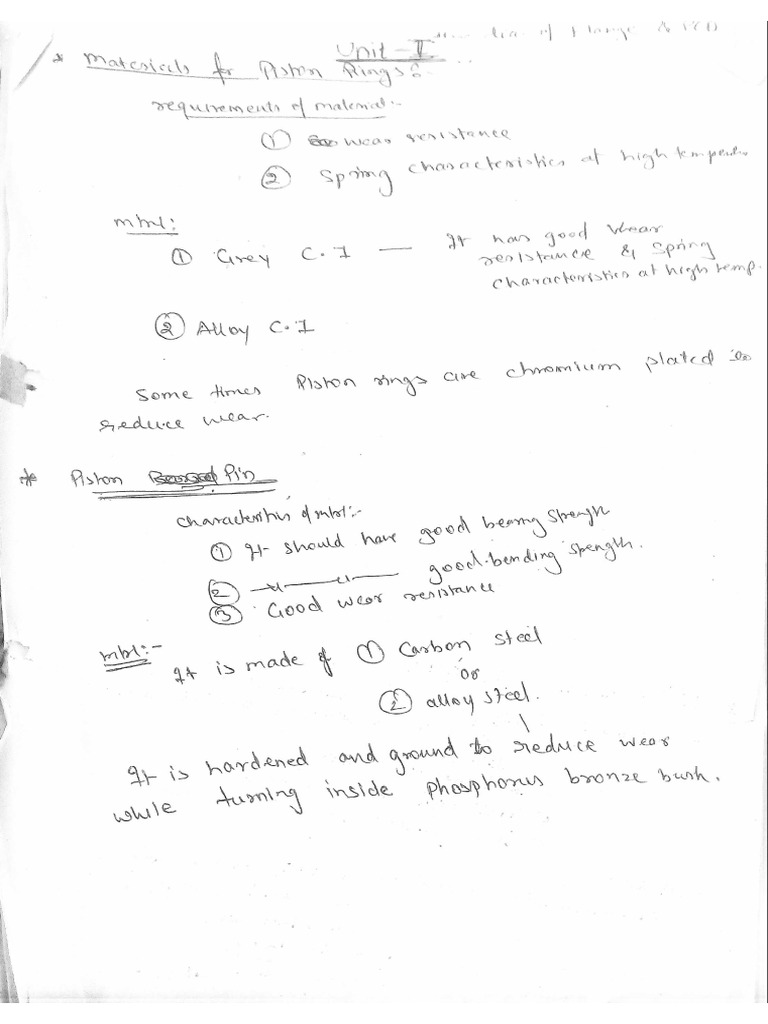 Unit-I
* Materials for Piston Rings:
requirements of material:-
① wear resistance
② Spring characteristics at high
mtrl:
① Grey C.I — It has good wear
resistance & spring
characteristics at high temp.
② Alloy C.I
Some times Piston rings are chromium plated to
reduce wear.
* Piston Pin
characteristics of mtrl:-
① It should have good bearing strength
② —〃—〃— good bending strength.
③ Good wear resistance
mtrl:-
It is made of ① Carbon steel
or
② alloy steel.
It is hardened and ground to reduce wear
while turning inside phosphorus bronze bush.